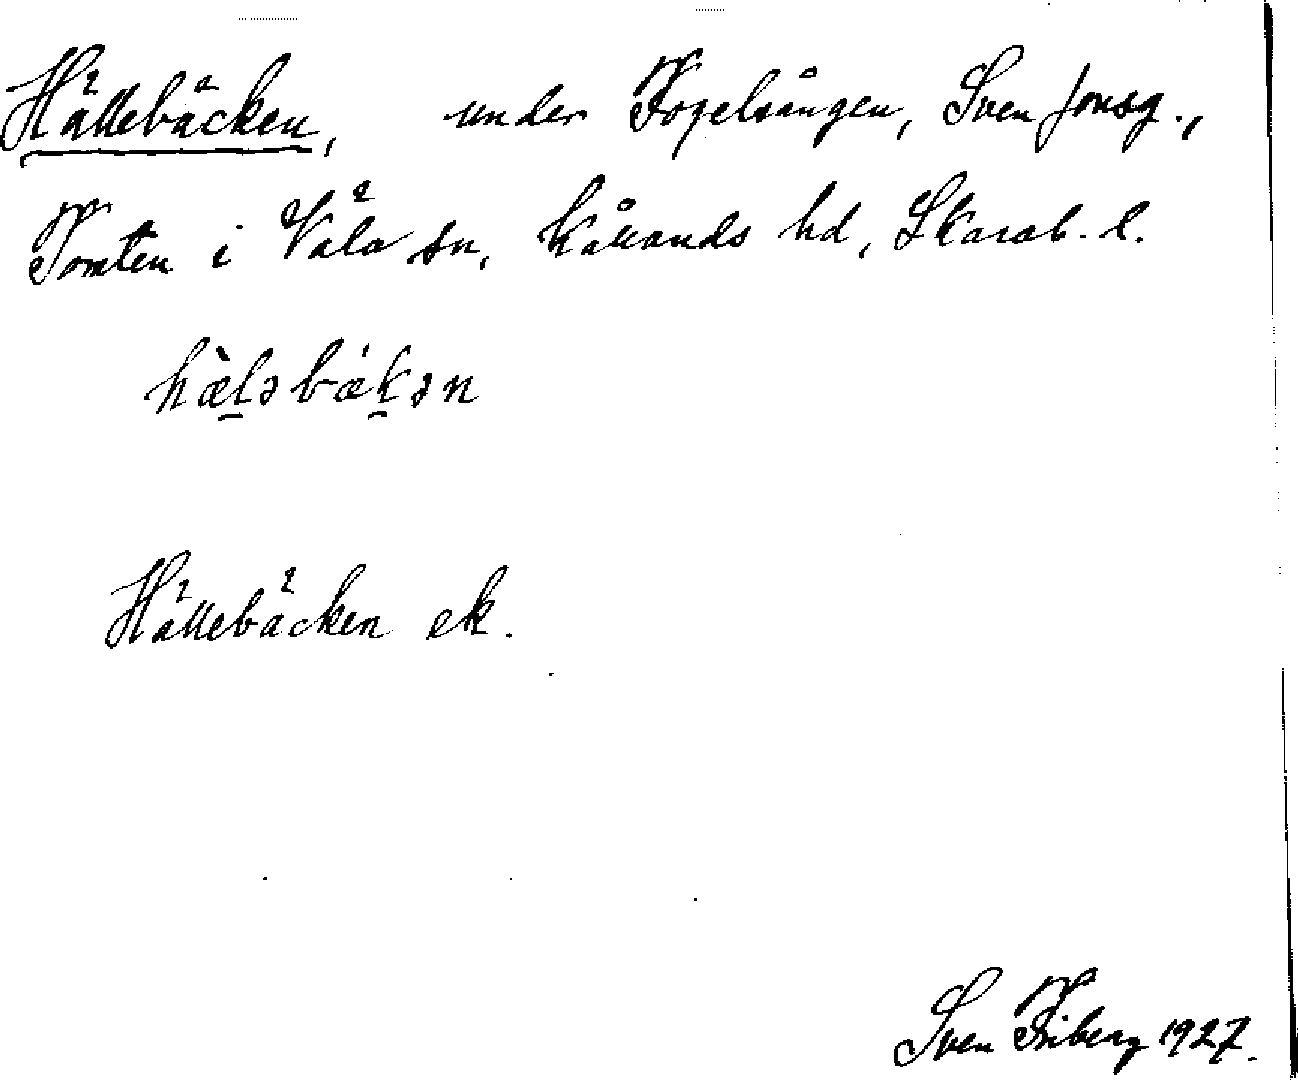 Hällebäcken, under Fogelsången, Sven Jonsg.,
Tomten i Väla sn, Kållands hd, Skarab. l.
hæ̀ləbǽkən
Hällebäcken ek.
Sven Friberg 1927.